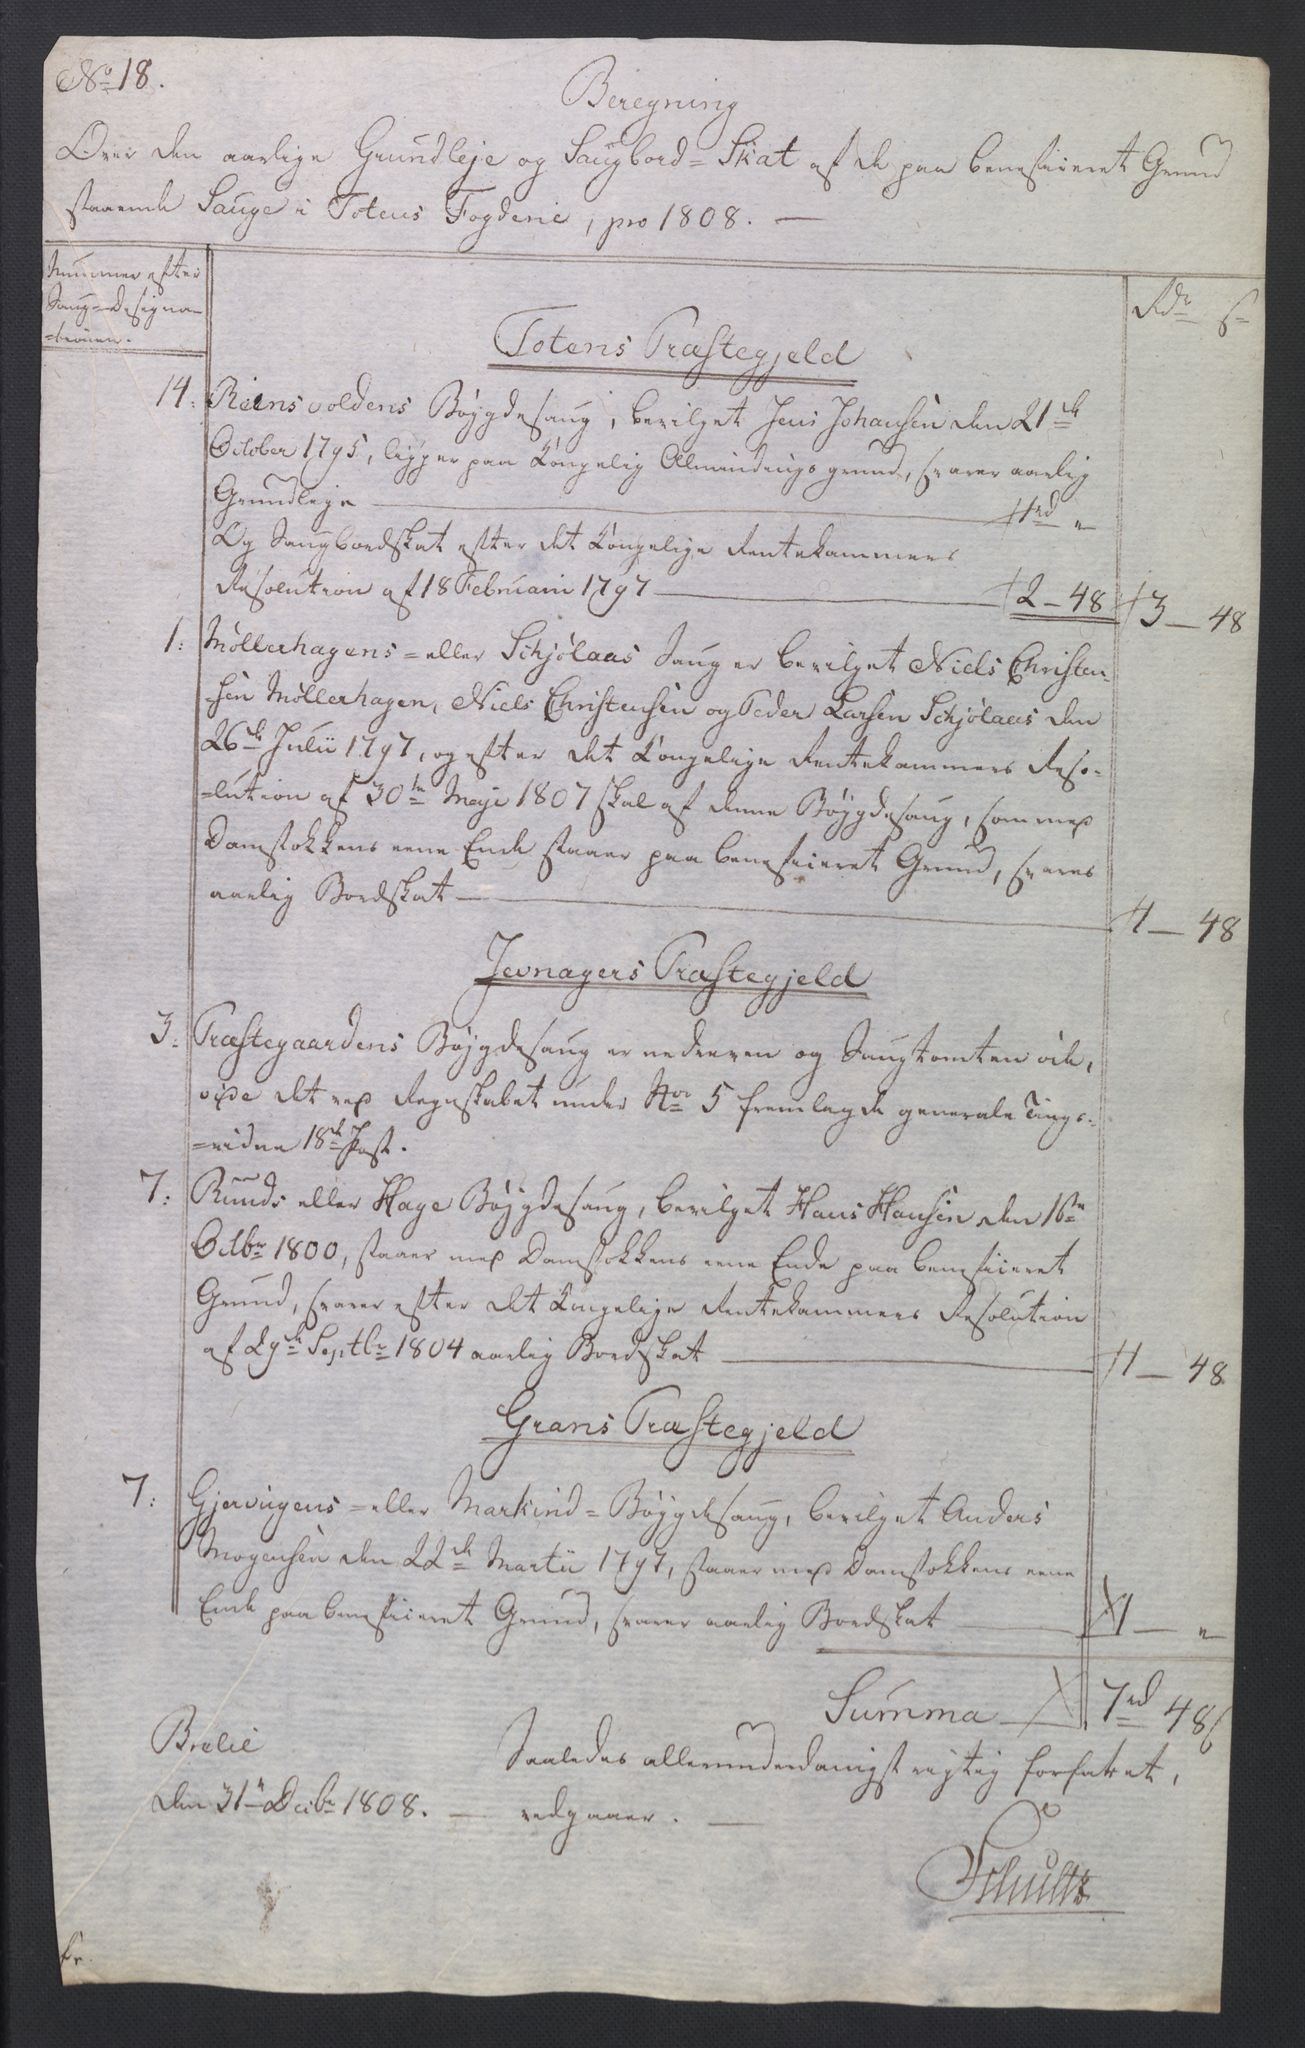 No 18.
Beregning
Over den aarlige Grundleje og Saugbord=Skat af de paa beneficeret Grund
staaende Sauge i Totens Fogderie, pro 1808. —
Nummer efter
Saug=Designa-
=tionen.
Rdr ß
Totens Præstegjeld
14. Reensvoldens Bøygdesaug, bevilget Jens Johansen den 21de
October 1795, ligger paa Kongelig Almindings grund, svarer aarlig
Grundleje — 1rd "
Og Saugbordskat efter det Kongelige Rentekammers
Resolution af 18 Februarii 1797 — 2 - 48 3 - 48
1: Møllerhagens= eller Schjølaas Saug er bevilget Niels Christen-
=sen Møllerhagen, Niels Christensen og Peder Larsen Schjølaas den
26de Julii 1797, og efter det Kongelige Rentekammers Reso-
=lution af 30te Maji 1807 skal af denne Bøygdesaug, som med
Damstokkens eene Ende staaer paa beneficeret Grund, svares
aarlig Bordskat — 1 - 48
Jevnagers Præstegjeld
3. Præstegaardens Bøjgdesaug er nedreven og Saugtomten øde,
vide det ved Regnskabet under No 5 fremlagde generale Tings-
=vidne 18de Post.
7: Runds eller Hage Bøjgdesaug, bevilget Hans Hansen den 16de
Octbr 1800, staaer med Damstokkens eene Ende paa beneficeret
Grund, svarer efter det Kongelige Rentekammers Resolution
af 29de Septbr 1804 aarlig Bordskat — 1 - 48
Grans Præstegjeld
7: Gjervigens= eller Markind=Bøygdesaug, bevilget Anders
Mogensen den 22de Martii 1797, staaer med Damstokkens eene
Ende paa beneficeret Grund, svarer aarlig Bordskat — 1 — "
Summa — 7rd 48ß
Brelie
Saaledes allerunderdanigst rigtig forfattet,
den 31te Decbr 1808. — vedgaaer. —
Schultz